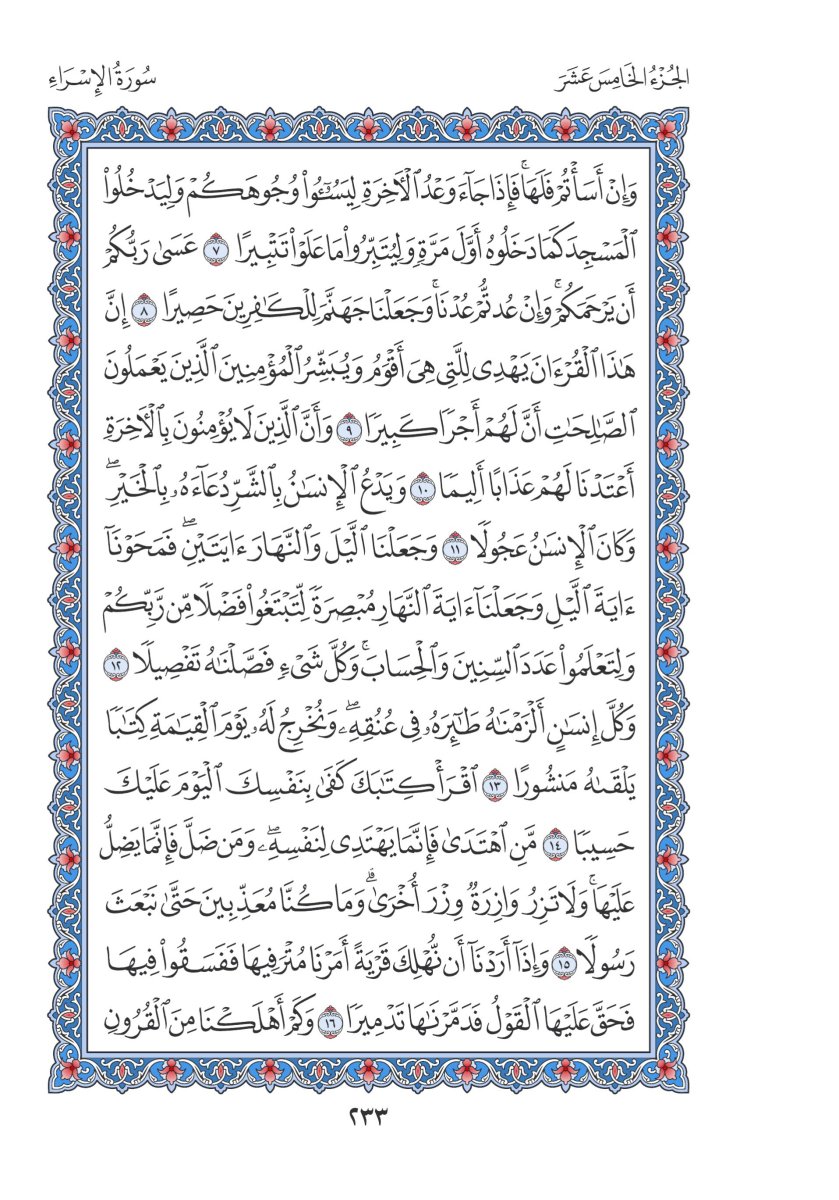 الجُزْءُ الخَامِسَ عَشَرَ
سُورَةُ الإِسْرَاءِ
وَإِنْ أَسَأْتُمْ فَلَهَاۚ فَإِذَا جَآءَ وَعْدُ ٱلْأٓخِرَةِ لِيَسُـُٔواْ وُجُوهَكُمْ وَلِيَدْخُلُواْ
ٱلْمَسْجِدَ كَمَا دَخَلُوهُ أَوَّلَ مَرَّةٖ وَلِيُتَبِّرُواْ مَا عَلَوْاْ تَتْبِيرًا ٧ عَسَىٰ رَبُّكُمْ
أَن يَرْحَمَكُمْۚ وَإِنْ عُدتُّمْ عُدْنَاۚ وَجَعَلْنَا جَهَنَّمَ لِلْكَٰفِرِينَ حَصِيرًا ٨ إِنَّ
هَٰذَا ٱلْقُرْءَانَ يَهْدِى لِلَّتِى هِىَ أَقْوَمُ وَيُبَشِّرُ ٱلْمُؤْمِنِينَ ٱلَّذِينَ يَعْمَلُونَ
ٱلصَّٰلِحَٰتِ أَنَّ لَهُمْ أَجْرٗا كَبِيرٗا ٩ وَأَنَّ ٱلَّذِينَ لَا يُؤْمِنُونَ بِٱلْأٓخِرَةِ
أَعْتَدْنَا لَهُمْ عَذَابًا أَلِيمٗا ١٠ وَيَدْعُ ٱلْإِنسَٰنُ بِٱلشَّرِّ دُعَآءَهُۥ بِٱلْخَيْرِۖ
وَكَانَ ٱلْإِنسَٰنُ عَجُولٗا ١١ وَجَعَلْنَا ٱلَّيْلَ وَٱلنَّهَارَ ءَايَتَيْنِۖ فَمَحَوْنَآ
ءَايَةَ ٱلَّيْلِ وَجَعَلْنَآ ءَايَةَ ٱلنَّهَارِ مُبْصِرَةٗ لِّتَبْتَغُواْ فَضْلٗا مِّن رَّبِّكُمْ
وَلِتَعْلَمُواْ عَدَدَ ٱلسِّنِينَ وَٱلْحِسَابَۚ وَكُلَّ شَىْءٖ فَصَّلْنَٰهُ تَفْصِيلٗا ١٢
وَكُلَّ إِنسَٰنٍ أَلْزَمْنَٰهُ طَٰٓئِرَهُۥ فِى عُنُقِهِۦۖ وَنُخْرِجُ لَهُۥ يَوْمَ ٱلْقِيَٰمَةِ كِتَٰبٗا
يَلْقَىٰهُ مَنشُورًا ١٣ ٱقْرَأْ كِتَٰبَكَ كَفَىٰ بِنَفْسِكَ ٱلْيَوْمَ عَلَيْكَ
حَسِيبٗا ١٤ مَّنِ ٱهْتَدَىٰ فَإِنَّمَا يَهْتَدِى لِنَفْسِهِۦۖ وَمَن ضَلَّ فَإِنَّمَا يَضِلُّ
عَلَيْهَاۚ وَلَا تَزِرُ وَازِرَةٞ وِزْرَ أُخْرَىٰۗ وَمَا كُنَّا مُعَذِّبِينَ حَتَّىٰ نَبْعَثَ
رَسُولٗا ١٥ وَإِذَآ أَرَدْنَآ أَن نُّهْلِكَ قَرْيَةً أَمَرْنَا مُتْرَفِيهَا فَفَسَقُواْ فِيهَا
فَحَقَّ عَلَيْهَا ٱلْقَوْلُ فَدَمَّرْنَٰهَا تَدْمِيرٗا ١٦ وَكَمْ أَهْلَكْنَا مِنَ ٱلْقُرُونِ
٢٣٣